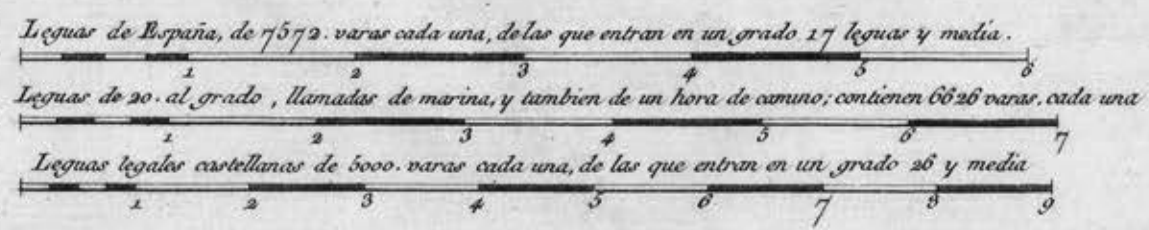 Leguas de España, de 7572. varas cada una, de las que entran en un grado 17 leguas y media.
1 2 3 4 5 6
Leguas de 20. al grado, llamadas de marina, y tambien de un hora de camino; contienen 6626 varas, cada una
1 2 3 4 5 6 7
Leguas legales castellanas de 5000. varas cada una, de las que entran en un grado 26 y media
1 2 3 4 5 6 7 8 9